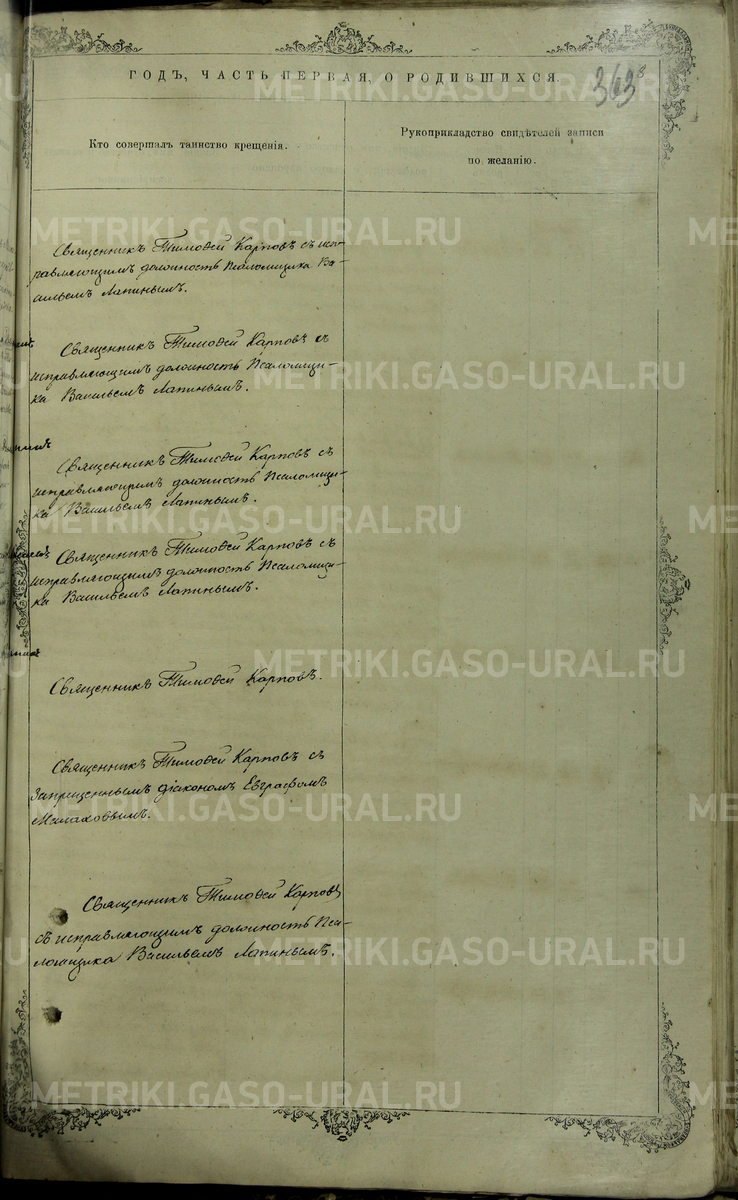 ГОДЪ, ЧАСТЬ ПЕРВАЯ, О РОДИВШИХСЯ.
363
Кто совершалъ таинство крещенія.
Рукоприкладство свидѣтелей записи
по желанію.
Священникъ Тимоѳей Карповъ съ исп-
равляющимъ должность Псаломщика Ва-
сильемъ Лапинымъ.
Священникъ Тимоѳей Карповъ съ
исправляющимъ должность Псаломщи-
ка Васильемъ Лапинымъ.
Священникъ Тимоѳей Карповъ съ
исправляющимъ должность Псаломщи-
ка Васильемъ Лапинымъ.
Священникъ Тимоѳей Карповъ съ
исправляющимъ должность Псаломщи-
ка Васильемъ Лапинымъ.
Священникъ Тимоѳей Карповъ.
Священникъ Тимоѳей Карповъ съ
Запрещеннымъ діакономъ Евграфомъ
Малаховымъ.
Священникъ Тимоѳей Карповъ
съ исправляющимъ должность Пса-
ломщика Васильемъ Лапинымъ.
METRIKI.GASO-URAL.RU